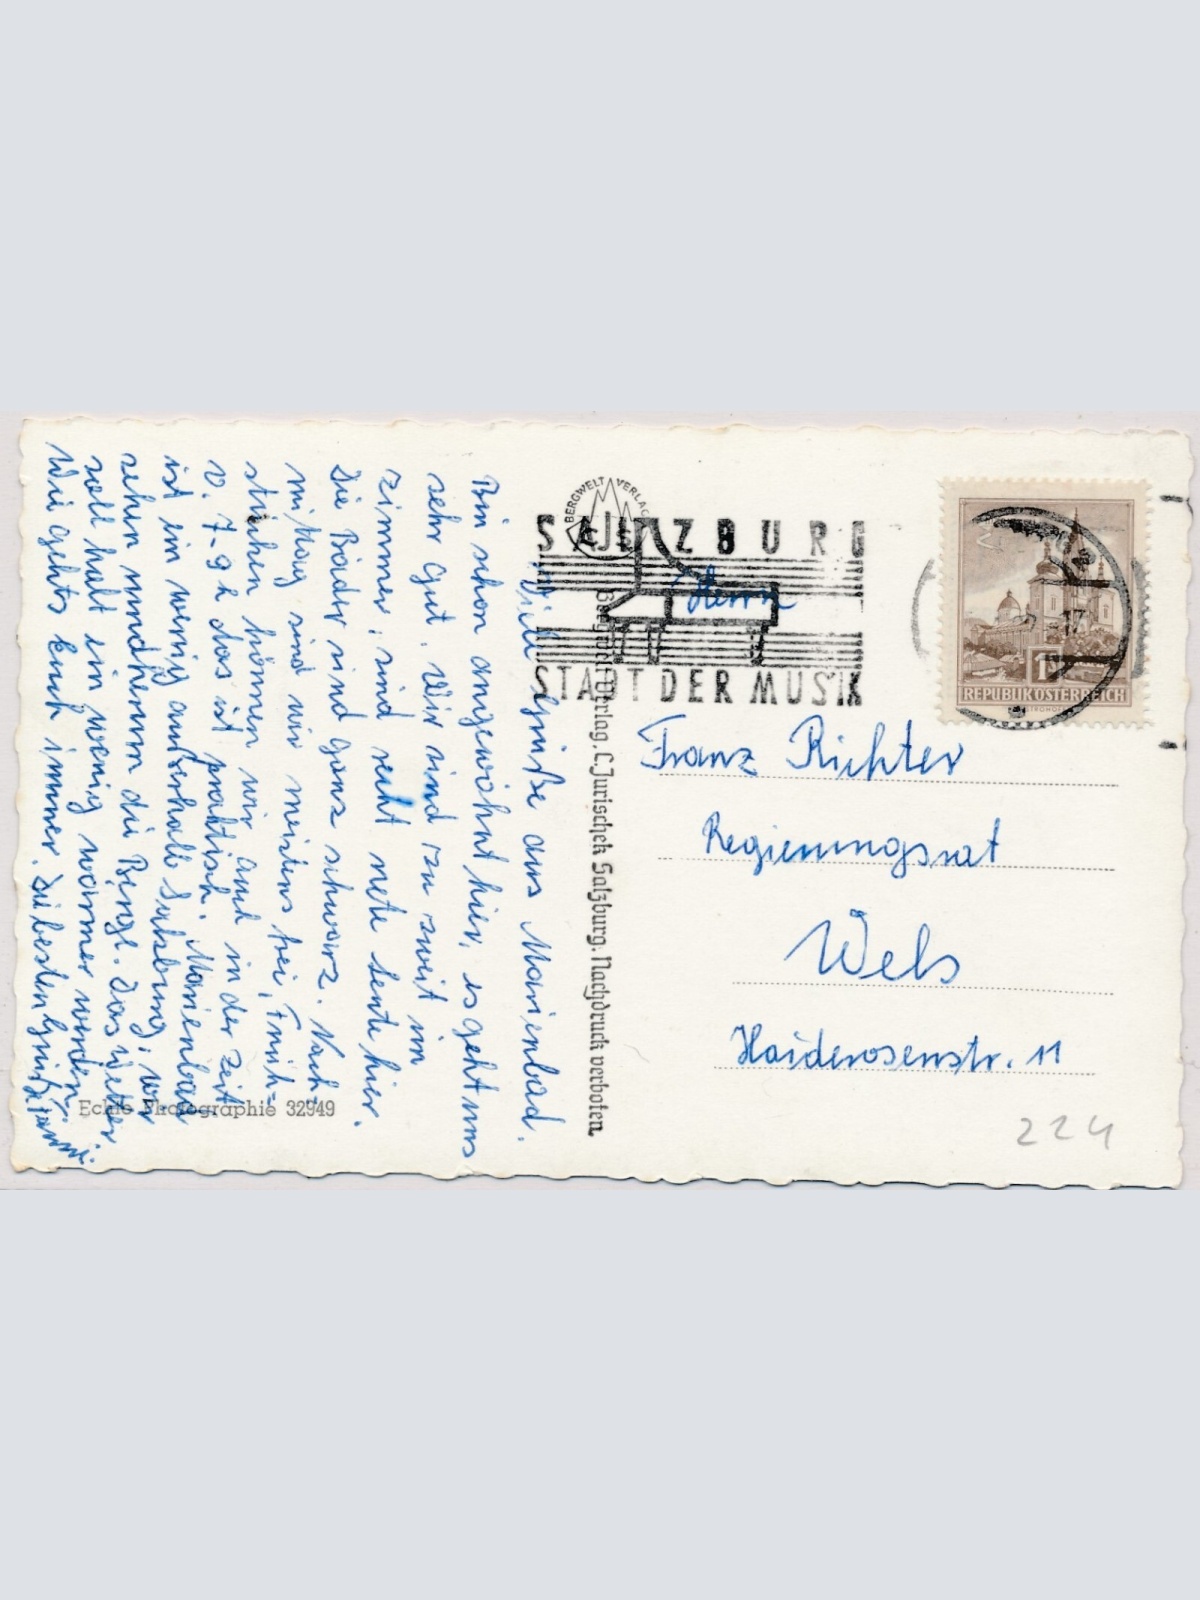 Viele Grüße aus Marienbad.
Bin schon angewöhnt hier, es geht uns
sehr gut. Wir sind zu zweit im
Zimmer, sind recht nete Leute hier.
Die Bäder sind ganz schwarz. Nach-
mittag sind wir meistens frei, Früh-
stücken können wir auch in der Zeit
v. 7-9h das ist praktisch. Marienbad
ist ein wenig außerhalb Salzburg, wir
sehen rundherum die Berge. Das Wetter
soll halt ein wenig wärmer werden.
Wie gehts Euch immer. Liebesten Grüße
BERGWELT VERLAG
SALZBURG
STADT DER MUSIK
Bergwelt-Verlag, C. Jurischek Salzburg. Nachdruck verboten.
Echte Photographie 32949
1S
REPUBLIK ÖSTERREICH
Herrn
Franz Richter
Regierungsrat
Wels
Haiderosenstr. 11
224